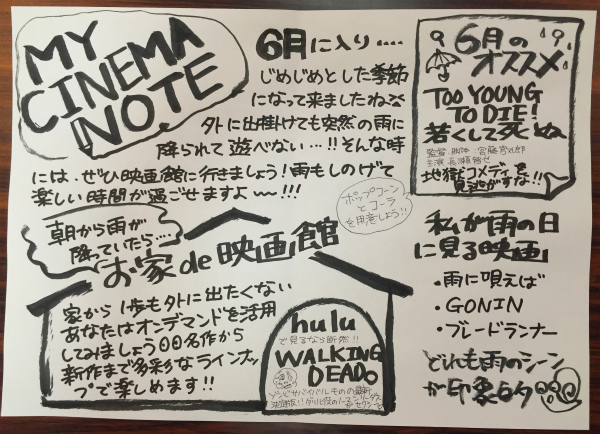 MY
CINEMA
NOTE
6月に入り‥‥
じめじめとした季節
になって来ましたね
外に出掛けても突然の雨に
降られて遊べない…!!そんな時
には、ぜひ映画館に行きましょう!雨もしのげて
楽しい時間が過ごせますよ〜!!!
6月の
オススメ
TOO YOUNG
TO DIE!
若くして死ぬ
監督 脚本 宮藤官九郎
主演 長瀬智也
地獄コメディを
見逃がすな!!
ポップコーン
とコーラ
を用意しよう!!
朝から雨が
降っていたら…
お家de映画館
家から1歩も外に出たくない
あなたはオンデマンドを活用
してみましょう〇〇名作から
新作まで多彩なラインナッ
プで楽しめます!!
hulu
で見るなら断然!!
WALKING
DEAD。
ゾンビサバイバルものの最新
私が雨の日
に見る映画
・雨に唄えば
・GONIN
・ブレードランナー
どれも雨のシーン
が印象的